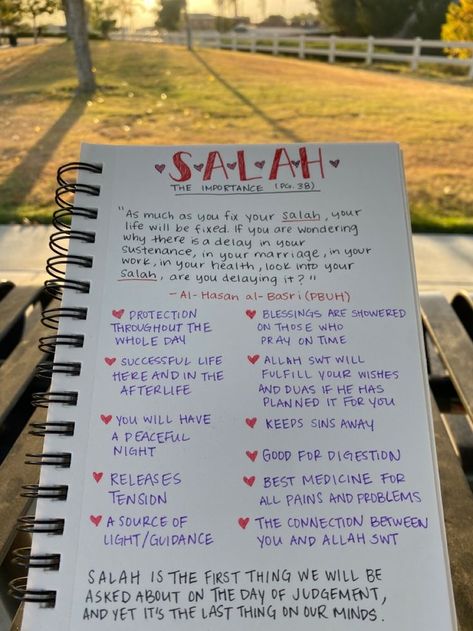 SALAH
THE IMPORTANCE (PG. 38)
"As much as you fix your Salah, your
life will be fixed. If you are wondering
why there is a delay in your
sustenance, in your marriage, in your
work, in your health, look into your
Salah, are you delaying it?"
- Al-Hasan al-Basri (PBUH)
PROTECTION
THROUGHOUT THE
WHOLE DAY
SUCCESSFUL LIFE
HERE AND IN THE
AFTERLIFE
YOU WILL HAVE
A PEACEFUL
NIGHT
RELEASES
TENSION
A SOURCE OF
LIGHT/GUIDANCE
BLESSINGS ARE SHOWERED
ON THOSE WHO
PRAY ON TIME
ALLAH SWT WILL
FULFILL YOUR WISHES
AND DUAS IF HE HAS
PLANNED IT FOR YOU
KEEPS SINS AWAY
GOOD FOR DIGESTION
BEST MEDICINE FOR
ALL PAINS AND PROBLEMS
THE CONNECTION BETWEEN
YOU AND ALLAH SWT
SALAH IS THE FIRST THING WE WILL BE
ASKED ABOUT ON THE DAY OF JUDGEMENT,
AND YET IT'S THE LAST THING ON OUR MINDS.